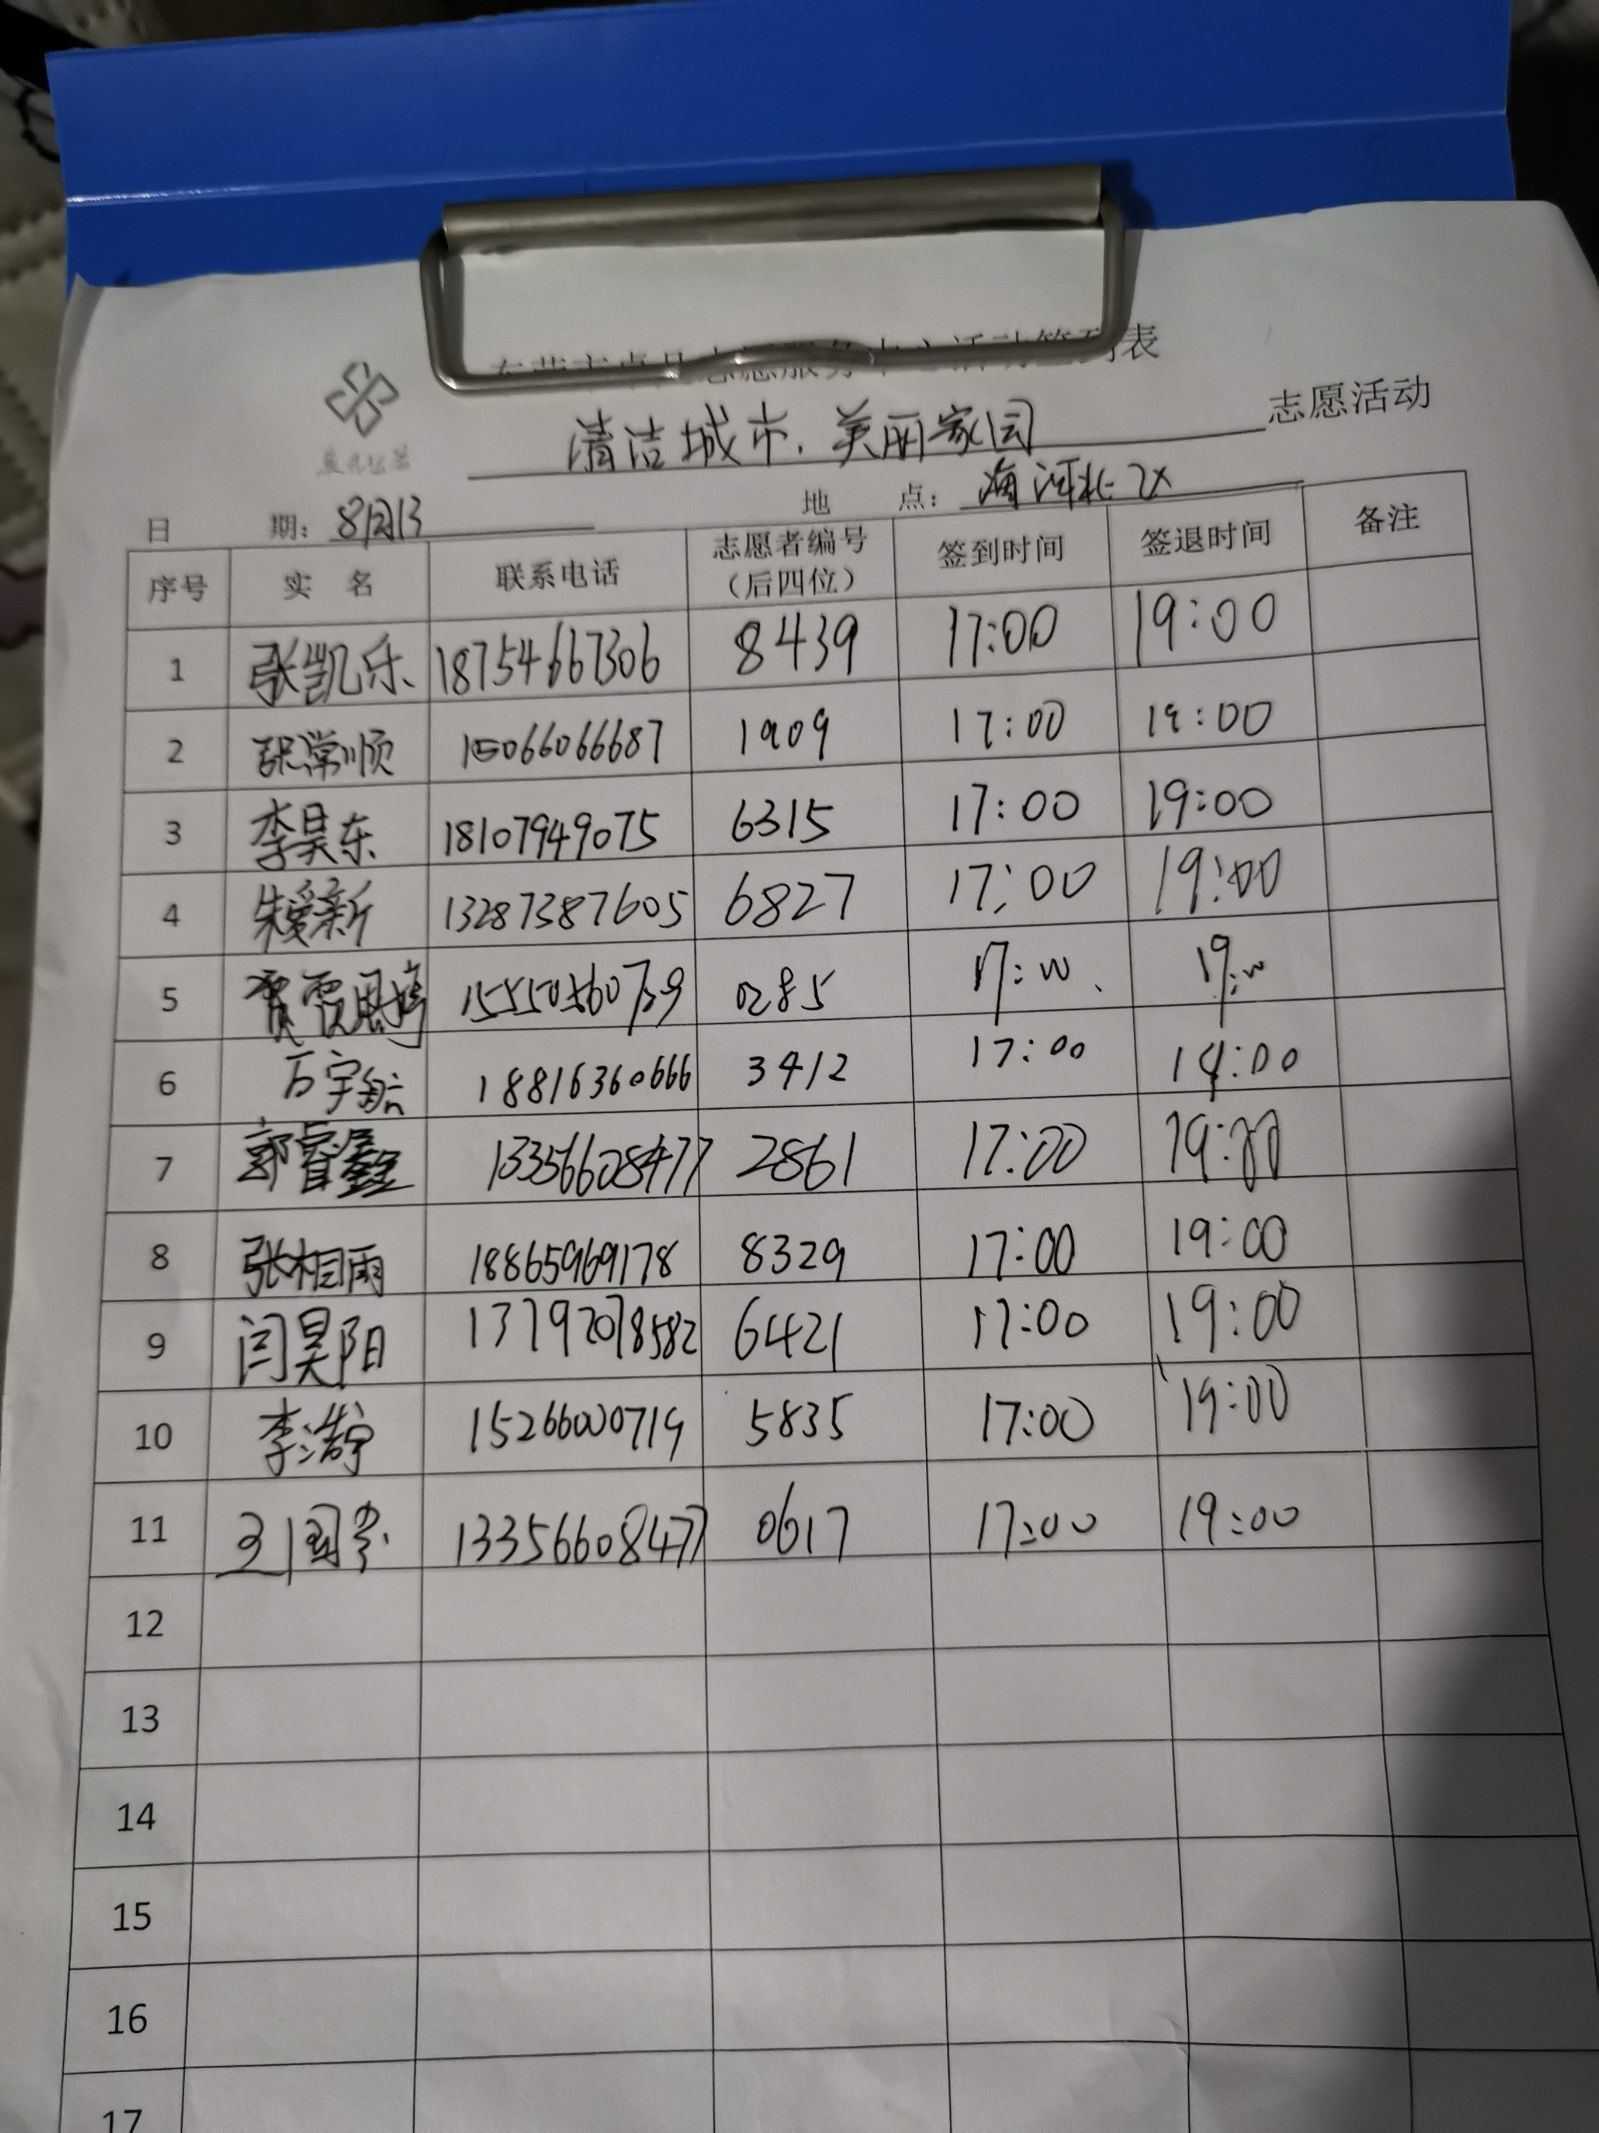 志愿服务中心活动签到表
清洁城市.美丽家园 志愿活动
日 期: 8月13 地 点:
序号 实 名 联系电话 志愿者编号 (后四位) 签到时间 签退时间 备注
1 张凯乐 18754667306 8439 17:00 19:00
2 张常顺 15066066687 1909 17:00 19:00
3 李昊东 18107949075 6315 17:00 19:00
4 朱爱新 13287387605 6827 17:00 19:00
5 0285 17:00 19:00
6 万宇航 18816360666 3412 17:00 19:00
7 郭睿鑫 13356608477 2861 17:00 19:00
8 张相雨 18865969178 8329 17:00 19:00
9 闫昊阳 13792078582 6421 17:00 19:00
10 李浩宇 15266000719 5835 17:00 19:00
11 13356608477 0617 17:00 19:00
12
13
14
15
16
17